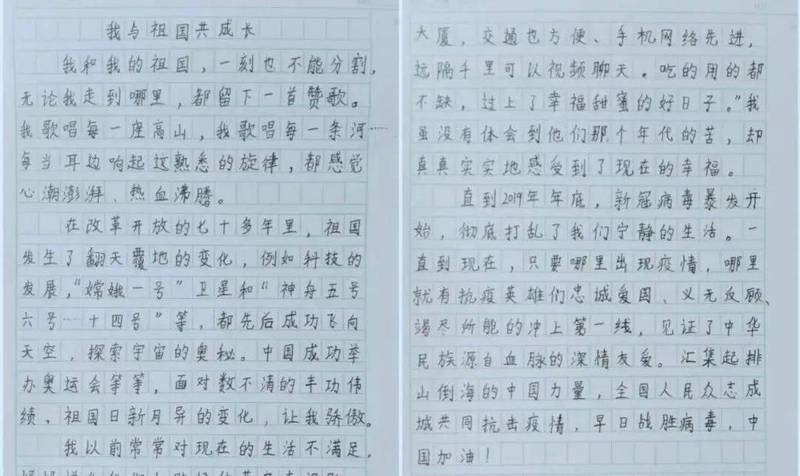 我与祖国共成长
我和我的祖国，一刻也不能分割，
无论我走到哪里，都留下一首赞歌。
我歌唱每一座高山，我歌唱每一条河……
每当耳边响起这熟悉的旋律，都感觉
心潮澎湃、热血沸腾。
在改革开放的七十多年里，祖国
发生了翻天覆地的变化，例如科技的
发展，“嫦娥一号”卫星和“神舟五号
六号……十四号”等，都先后成功飞向
天空，探索宇宙的奥秘。中国成功举
办奥运会等等，面对数不清的丰功伟
绩、祖国日新月异的变化，让我骄傲。
我以前常常对现在的生活不满足，
大厦，交通也方便、手机网络先进，
远隔千里可以视频聊天。吃的用的都
不缺，过上了幸福甜蜜的好日子。”我
虽没有体会到他们那个年代的苦，却
真真实实地感受到了现在的幸福。
直到2019年年底，新冠病毒暴发开
始，彻底打乱了我们宁静的生活。一
直到现在，只要哪里出现疫情，哪里
就有抗疫英雄们忠诚爱国、义无反顾、
竭尽所能的冲上第一线，见证了中华
民族源自血脉的深情友爱。汇集起排
山倒海的中国力量，全国人民众志成
城共同抗击疫情，早日战胜病毒，中
国加油！